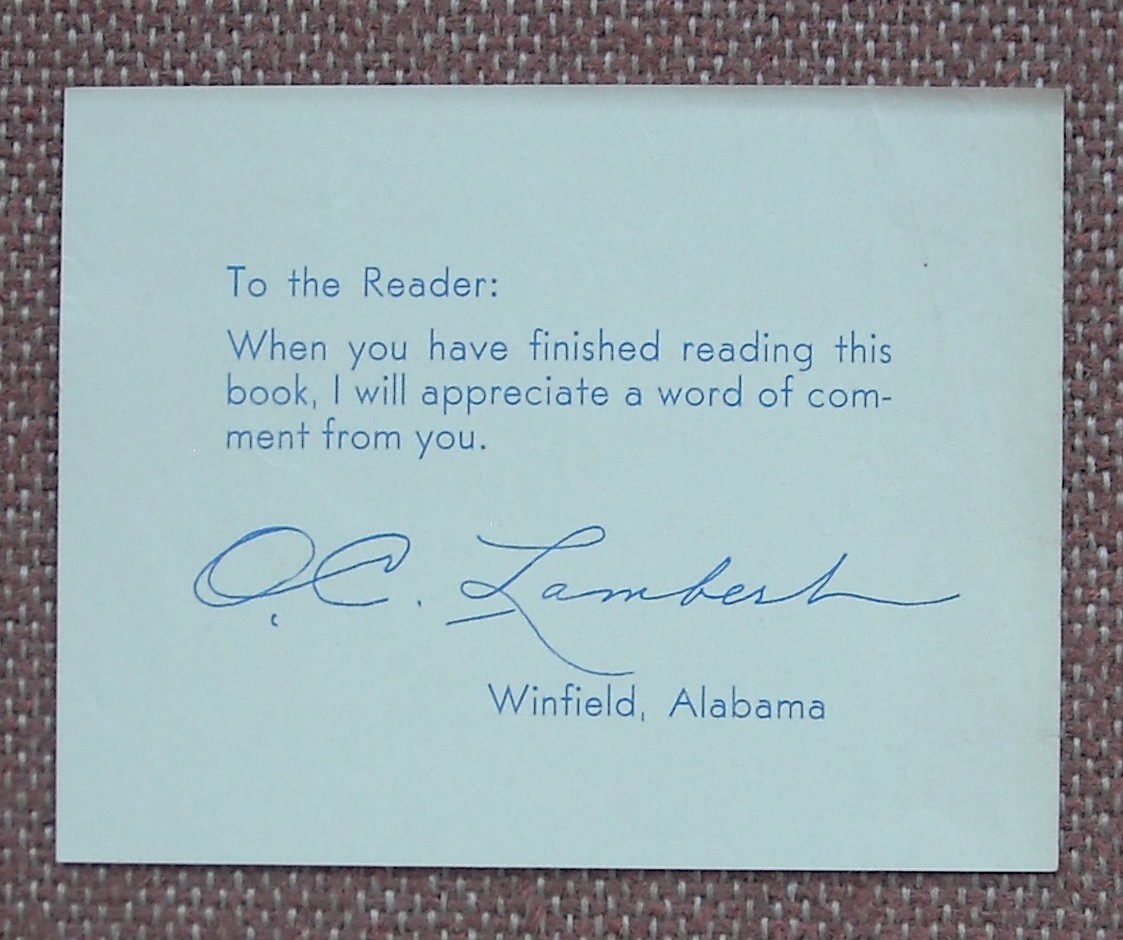 To the Reader:
When you have finished reading this
book, I will appreciate a word of com-
ment from you.
O.C. Lambert
Winfield, Alabama